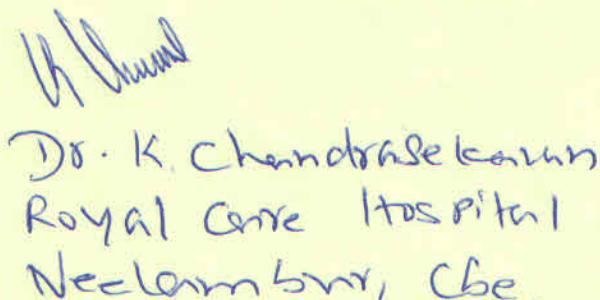 Dr. K. Chandrasekaran
Royal Care Hospital
Neelambur, Cbe